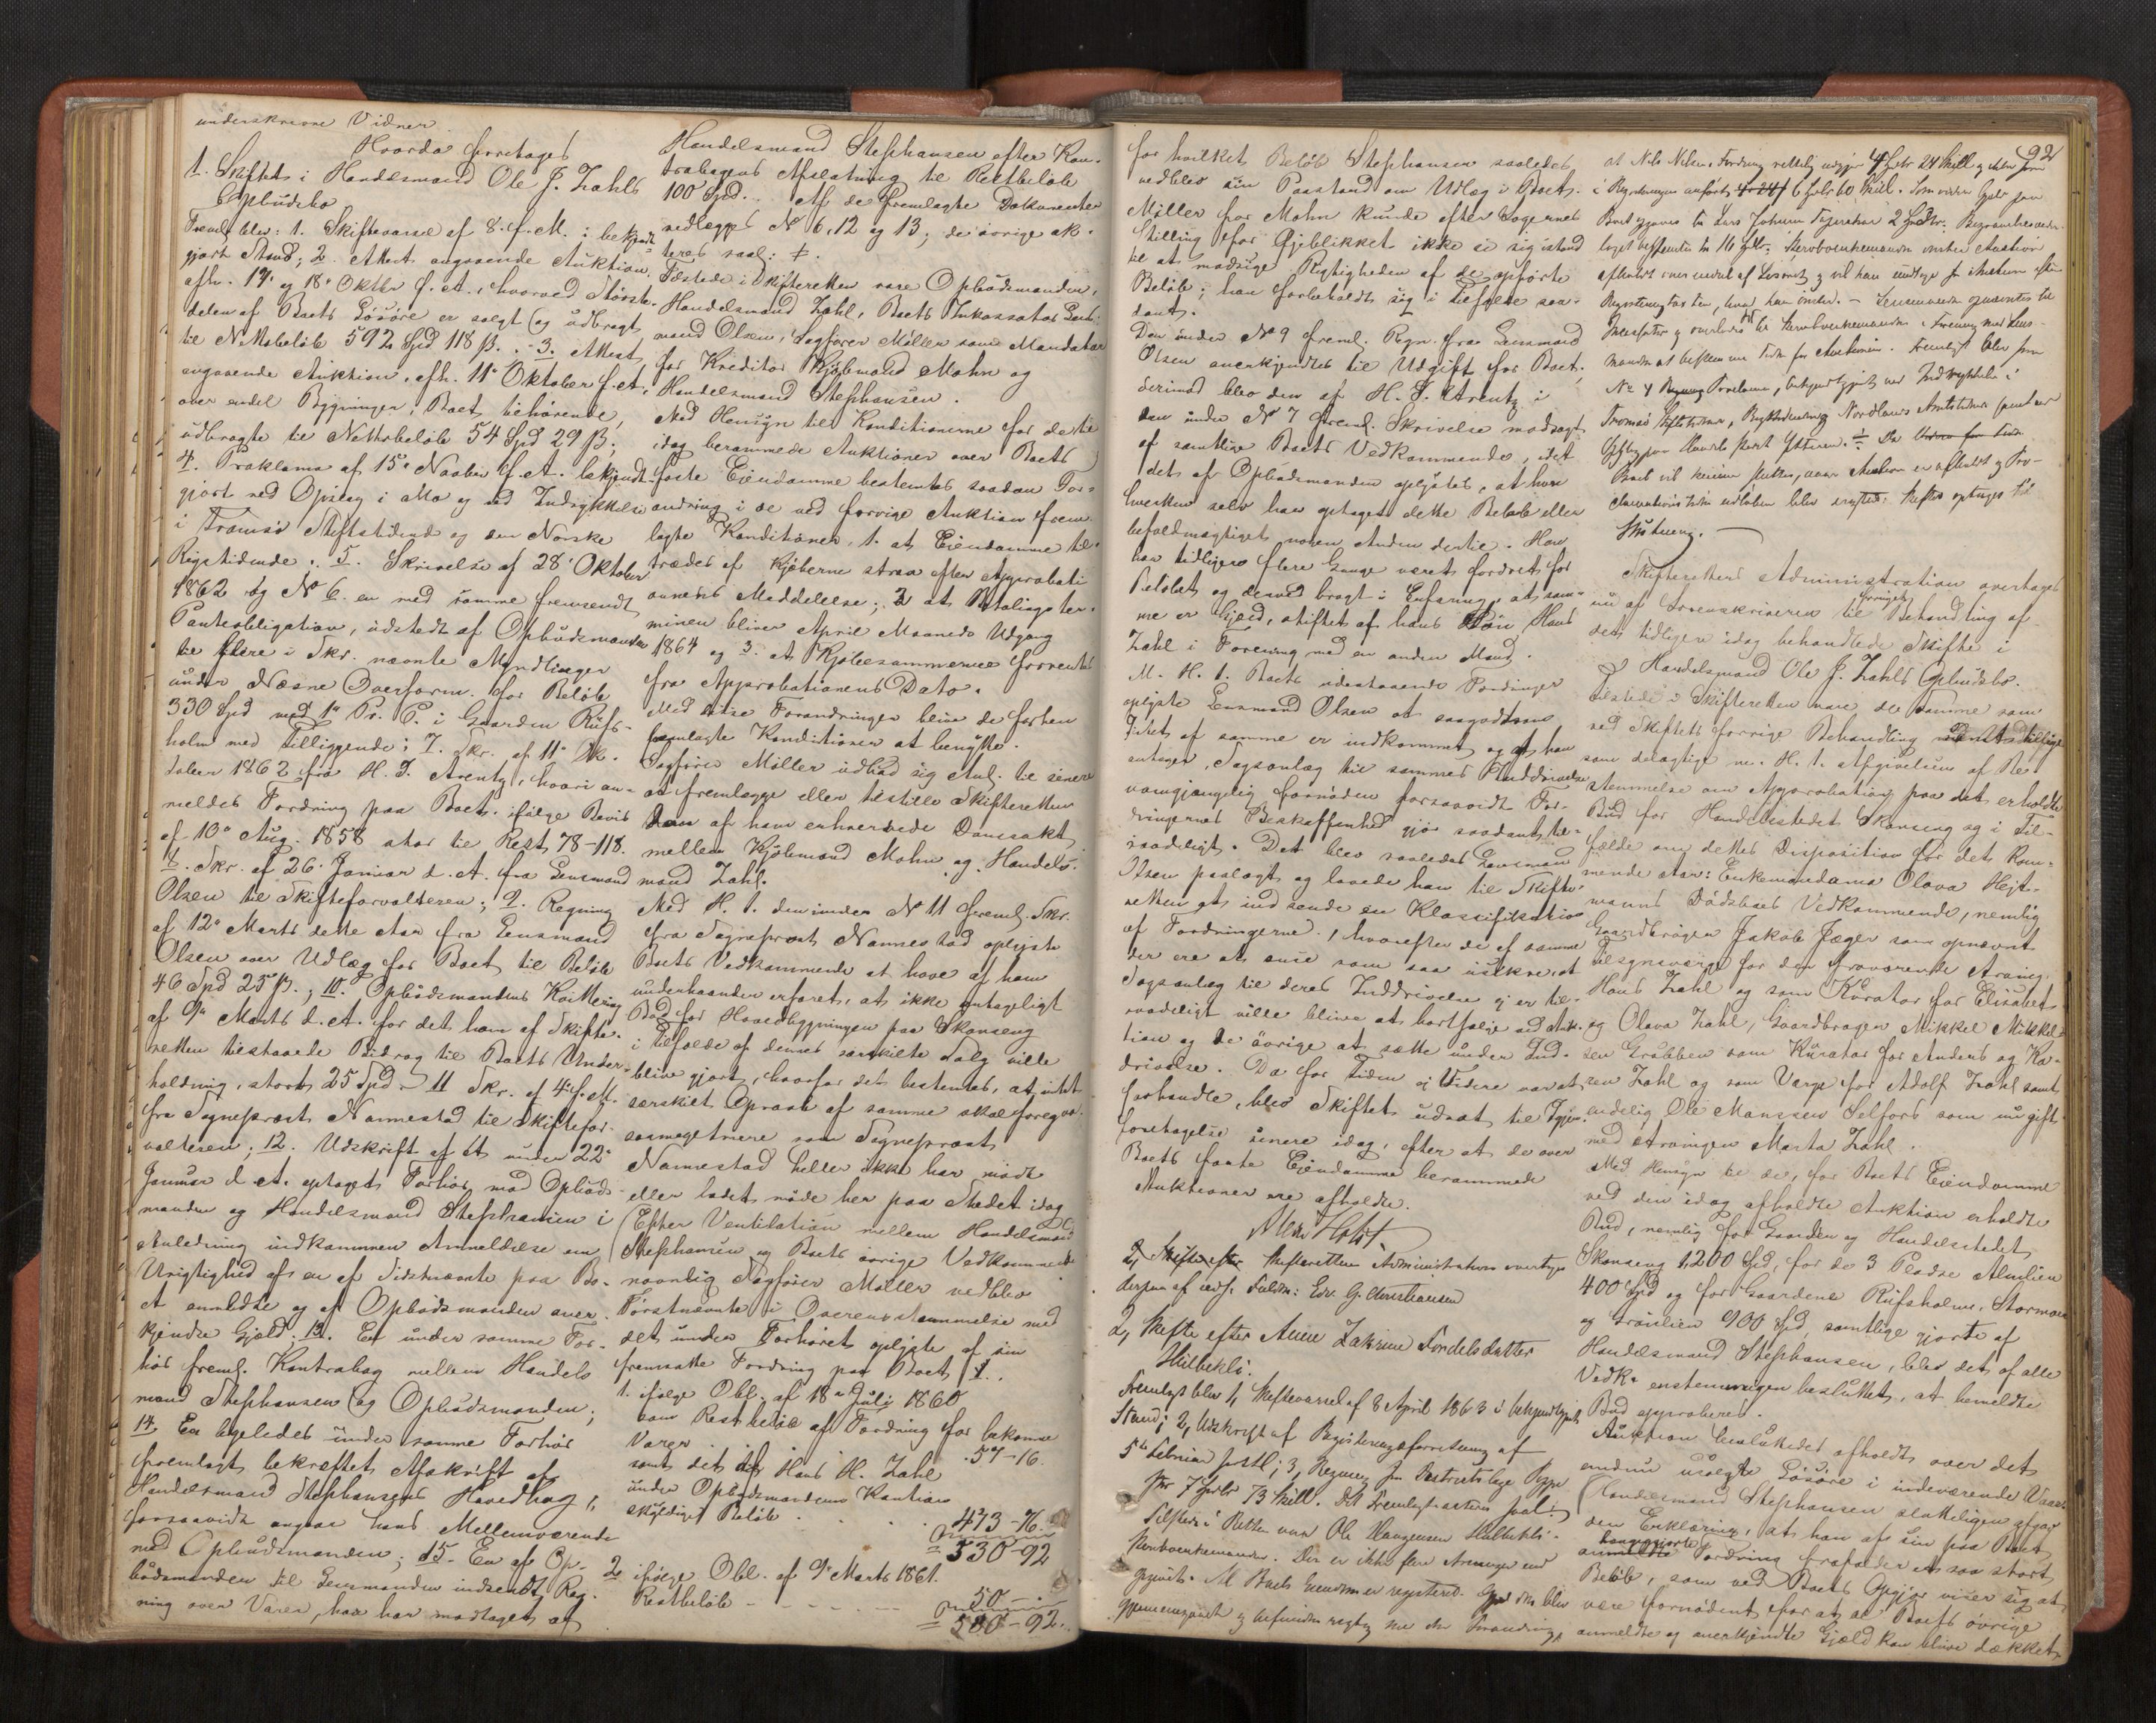 underskrevne Vidner.
Hvorda foretoges
1. Skiftet i Handelsmand Ole J. Zahls
Opbudsbo.
Freml. blev: 1. Skiftevarsel af 8. f. M. i bekjendt-
gjort Stand; 2. Attest angaaende Auktion,
afh. 17de og 18de Oktbr f. A., hvorved Störste-
delen af Boets Lösöre er solgt og udbragt
til Nettobelöb 592 Spd 118 ß. - 3. Attest
angaaende Auktion, afh. 11te Oktober f. A.,
over endel Bygninger, Boet tilhörende,
udbragte til Nettobelöb 54 Spd 29 ß;
4. Proklama af 15de Novbr f. A. bekjendt-
gjort ved Opslag i Mo og ved Indrykkelse
i Tromsö Stiftstidende og den Norske
Rigstidende; 5. Skrivelse af 28de Oktober
1862 og No 6. en med samme fremsendt
Panteobligation, udstedt af Opbudsmanden
til flere i Skr. nævnte Myndlinger
under Næsne Overform. for Belöb
330 Spd med 1ste Pr. P. i Gaarden Rufs-
holm med Tilliggende; 7. Skr. af 11te Ok-
tober 1862 fra H. J. Arentz, hvori an-
meldes Fordring paa Boet ifölge Bevis
af 10de Aug. 1858 stor til Rest 78-118.
8. Skr. af 26. Januar d. A. fra Lensmand
Olsen til Skifteforvalteren; 9. Regning
af 12te Marts dette Aar fra Lensmand
Olsen over Udlæg for Boet til Belöb
46 Spd 25 ß.; 10. Opbudsmandens Kvittering
af 9de Marts d. A. for det ham af Skifte-
retten tilstaaede Bidrag til Boets Under-
holdning, stort 25 Spd. - 11 Skr. af 4de f. M.
fra Sogneprest Nannestad til Skiftefor-
valteren; 12. Udskrift af et under 22de
Januar d. A. optaget Forhör med Opbuds-
manden og Handelsmand Stephansen i
Anledning indkommen Anmeldelse om
Urigtighed af en af Sidstnævnte paa Bo-
et anmeldte og af Opbudsmanden aner-
kjendte Gjæld. 13. En under samme For-
hör freml. Kontrabog mellem Handels-
mand Stephansen og Opbudsmanden;
14. En ligeledes under samme Forhör
fremlagt bekræftet Afskrift af
Handelsmand Stephansens Hovedbog,
forsaavidt angaar hans Mellemværende
med Opbudsmanden; 15. En af Op-
budsmanden til Lensmanden indsendt Reg-
ning over Varer, han har modtaget af
Handelsmand Stephansen efter Kon-
trabogens Afslutning til Restbelöb
100 Spd. Af de fremlagte Dokumenter
vedlægges No 6, 12 og 13; de övrige ak-
teres saal:
Tilstede i Skifteretten vare Opbudsmanden,
Handelsmand Zahl, Boets Inkassator Lens-
mand Olsen, Sagförer Möller som Mandatar
for Kreditor Kjöbmand Mohn og
Handelsmand Stephansen.
Med Hensyn til Konditionerne for de til
idag berammede Auktioner over Boets
faste Eiendomme bestemtes saadan For-
andring i de ved forrige Auktion frem-
lagte Konditioner, 1. at Eiendomme til-
trædes af Kjöberne strax efter Approbati-
onens Meddelelse; 2 at Betalingster-
minen bliver April Maaneds Udgang
1864 og 3. at Kjöbesummerne forrentes
fra Approbationens Dato.
Med disse Forandringer blive de forhen
fremlagte Konditioner at benytte.
Sagförer Möller udbad sig Anl. til senere
at fremlægge eller tilstille Skifteretten
mellem Kjöbmand Mohn og Handels-
mand Zahl.
Med H. t. den under No 11 freml. Skr.
fra Sogneprest Nannestad oplyste
Boets Vedkommende at have af ham
underhaanden erfaret, at ikke antageligt
Bud for Hovedbygningen paa Skonseng
i Tilfælde af dennes særskilte Salg ville
blive gjort, hvorfor det bestemtes, at intet
særskilt Opraab af samme skal foregaa,
saameget mere som Sogneprest
Nannestad heller ikke har mödt
eller ladet möde her paa Stedet idag
Efter Ventilation mellem Handelsmand
Stephansen og Boets övrige Vedkommende
navnlig Sagförer Möller vedblev
Förstnævnte i Overensstemmelse med
det under Forhöret oplyste af sin
fremsatte Fordring paa Boet
1. ifölge Obl. af 18de Juli 1860
som Restbelöb af Fordring for bekomne
Varer . . . 57-16.
samt det af Hans H. Zahl
under Opbudsmandens Kaution
skyldige Belöb . . . . 473-76.
= 530-92
2 ifölge Obl. af 9de Marts 1861.
Restbelöb - - - - - 50 - "
= 580-92.
92
for hvilket Belöb Stephansen saaledes
vedblev sin Paastand om Udlæg i Boet.
Möller for Mohn kunde efter Sagernes
Stilling for Öjeblikket ikke se sig istand
til at modsige Rigtigheden af de opförte
Belöb; han forbeholdt sig i Tilfælde saa-
dant.
Den under No 9 freml. Regn. fra Lensmand
Olsen anerkjendtes til Udgift for Boet;
derimod blev den af H. J. Arentz i
den under No 7 freml. Skrivelse modsagt
af samtlige Boets Vedkommende, idet
det af Opbudsmanden oplystes, at han
hverken selv har optaget dette Belöb eller
befuldmægtiget nogen Anden dertil. Han
har tidligere flere Gange været fordret for
Belöbet og derved bragt i Erfaring, at sam-
me er Gjæld, stiftet af hans Sön, Hans
Zahl i Forening med en anden Mand.
M. H. t. Boets udestaaende Fordringer
oplyste Lensmand Olsen at saagodtsom
Intet af samme er indkommet, og at han
antager, Sagsanlæg til sammes Inddrivelse
uomgjængelig fornöden forsaavidt For-
dringernes Beskaffenhed gjör saadant til-
raadeligt. Det blev saaledes Lensmand
Olsen paalagt og lovede han til Skifte-
retten at indsende en Klassifikation
af Fordringerne, hvorefter de af samme
der ere at anse som saa usikre, at
Sagsanlæg til deres Inddrivelse ej er til-
raadeligt ville blive at bortsælge ved Auk-
tion og de övrige at sætte under Ind-
drivelse. Da for Tiden ej Videre var at
forhandle, blev Skiftet udsat til Igjen-
foretagelse senere idag, efter at de over
Boets faste Eiendomme berammede
Auktioner ere afholdte.
Alex Holst
2, Skifterettens Administration overtoges
derpaa af edsv. Fuldm: Edv. G. Christiansen
2, Skifte efter Anne Zakrine Tordelsdatter
Hilbekli.
Fremlagt blev 1, Skiftevarsel af 8 April 1863 i bekjendtgjort
Stand; 2, Udskrift af Registreringsforretning af
5te Februar sidstl; 3, Regning fra Distriktslæge
for 7 Spdlr 73 Skill. Det Fremlagte acteres saal:
Tilstede i Retten var Ole Haagensen Hilbekli -
Sterboenkemanden. Der er ikke flere Arvinger end
opgivet. Al Boets Eiendom er registreret.
gjennemgaaet og befunden rigtig med den Forandring,
at Nils Nilsens Fordring rettelig udgjör 4 Spdlr 24 Skill og ikke som
i Registreringen anfört 6 Spdlr 60 Skill. Som videre Gjæld paa
Boet opgaves til Lars Johan 2 Spdlr. Begravelsesveder-
laget bestemtes til 16 Spdlr. Sterboenkemanden önsker Auktion
afholdt over endel af Lösöret og vil han udtage for Auktionen efter
Registreringstaxten, hvad han önsker. - Lensmanden opnævntes til
Inkassator og overlodes det til Sterboenkemanden i Forening med Lens-
manden at bestemme Tiden for Auktionen. Fremlagt blev som
No 4 Proclama, bekjendtgjort ved Indrykkelse i
Tromsö Stiftstidende, og Nordlands Amtstidende samt ved
Boet vil kunne sluttes, naar Auktion er afholdt og Pro-
clamationstiden udlöben blev Skiftet optaget til
Slutning. -
Skifterettens Administration overtoges
nu af Sorenskriveren til Behandling af
det tidligere idag behandlede Skifte i
Handelsmand Ole J. Zahls Opbudsbo.
Tilstede i Skifteretten vare de samme som
ved Skiftets forrige Behandling
som delagtige m. H. t. Afgivelsen af Be-
stemmelse om Approbation paa det erholdte
Bud for Handelsstedet Skonseng og i Til-
fælde om dettes Disposition for det kom-
mende Aar: Enkemadame Olava Hejt-
manns Dödsboes Vedkommende, nemlig
Gaardbruger Jakob Jæger som opnævnt
Tilsynsværge for den fraværende Arving
Hans Zahl og som Kurator for Elisabet
og Olava Zahl, Gaardbruger Mikkel Mikkel-
sen Grubben som Kurator for Anders og Ka-
ren Zahl og som Værge for Adolf Zahl samt
endelig Ole Monssen Selfors som nu gift
med Arvingen Marta Zahl.
Med Hensyn til de, for Boets Eiendomme
ved den idag afholdte Auktion erholdte
Bud, nemlig for Gaarden og Handelsstedet
Skonseng 1,200 Spd, for de 3 Pladse Almlien
400 Spd og for Gaardene Rufsholm, Stormoen
og Grönlien 900 Spd, samtlige gjorte af
Handelsmand Stephansen, blev det af alle
Vedk. enstemmigen besluttet, at bemeldte
Bud approberes.
Auktion besluttedes afholdt over det
endnu usolgte Lösöre i indeværende Vaar
Handelsmand Stephansen sluttelig afgav
den Erklæring, at han af sin paa Boet
havende Fordring frafalder et saa stort
Belöb, som ved Boets Opgjör viser sig at
være fornödent for at al Boets övrige
anmeldte og anerkjendte Gjæld kan blive dækket.